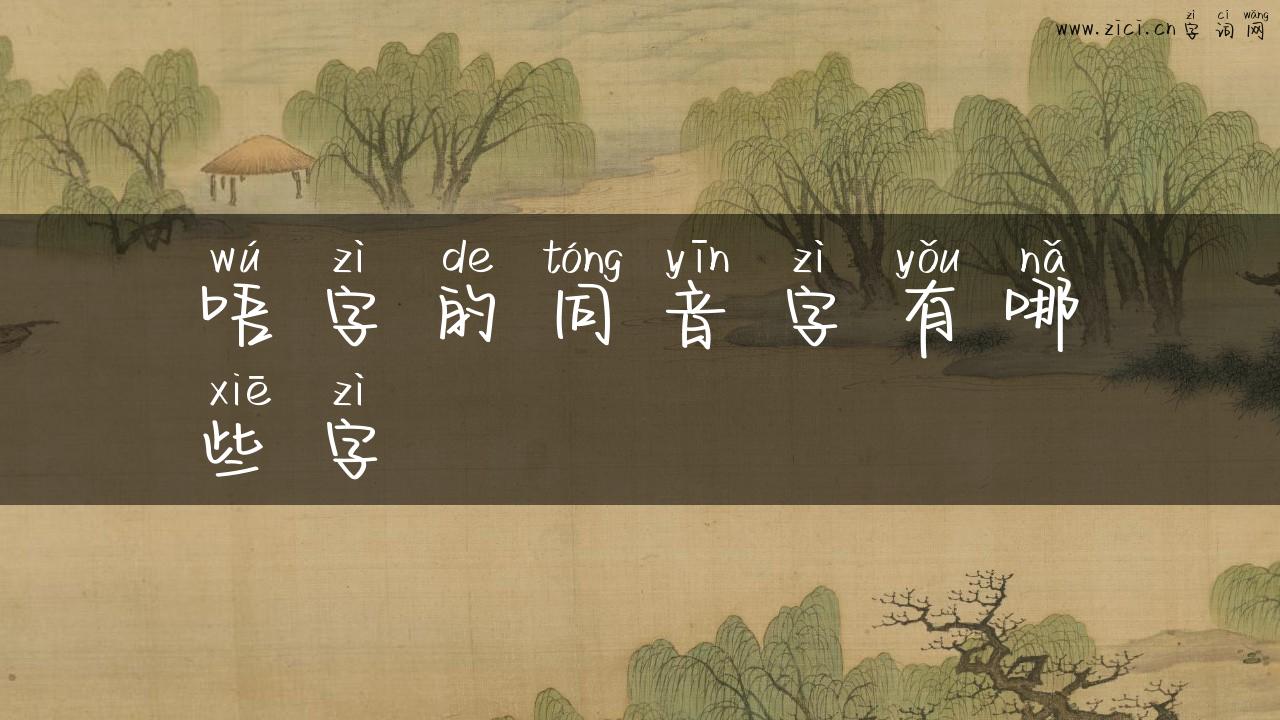 zì cí wǎng
www.zici.cn 字 词 网
wú zì de tóng yīn zì yǒu nǎ
唔 字 的 同 音 字 有 哪
xiē zì
些 字